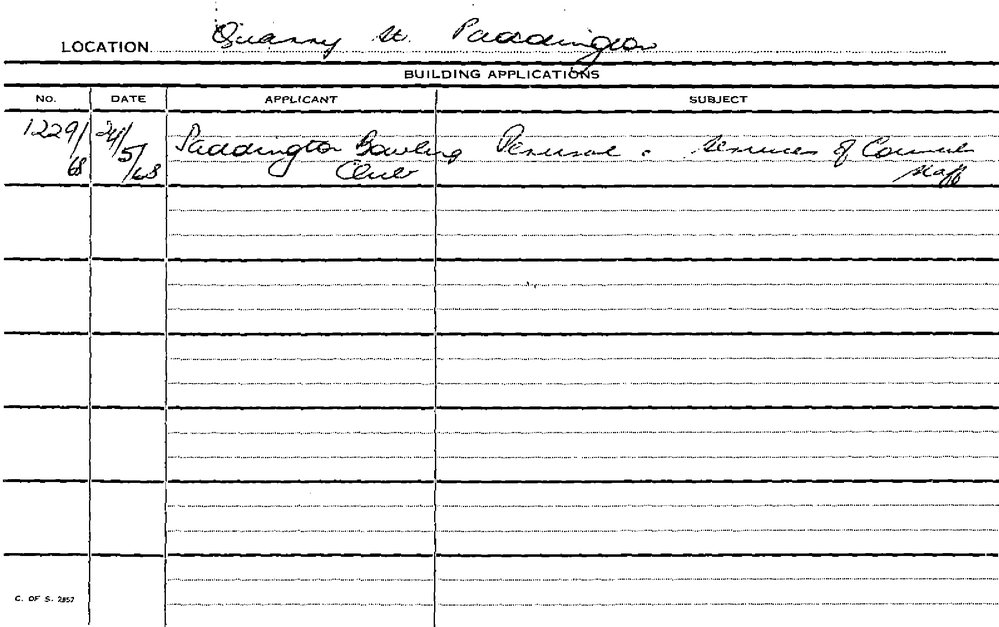 LOCATION Quarry St. Paddington
BUILDING APPLICATIONS
NO. DATE APPLICANT SUBJECT
1229/ 24/ Paddington Bowling Perusal - Services of Council
68 5/68 Club Staff
C. OF S. 2857